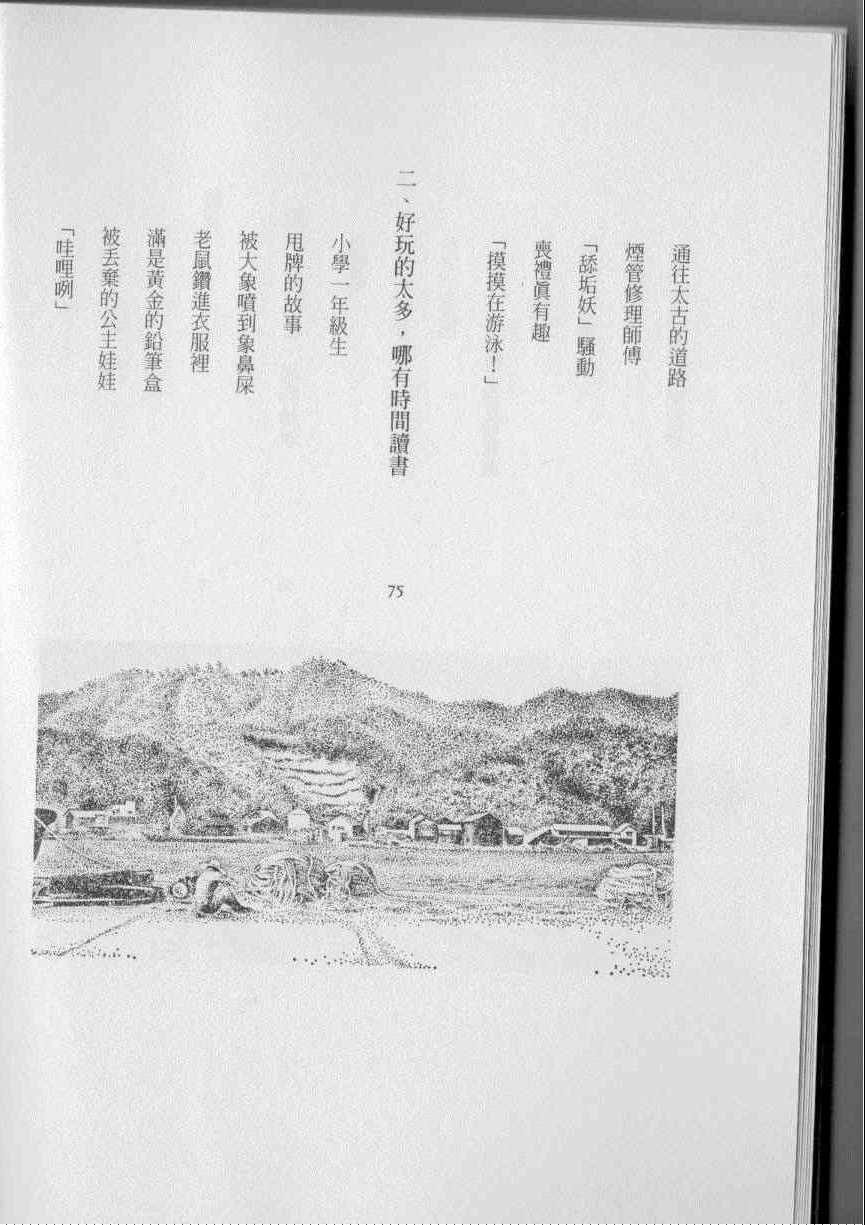 通往太古的道路
煙管修理師傅
「舔垢妖」騷動
喪禮眞有趣
「摸摸在游泳！」
二、好玩的太多，哪有時間讀書
75
小學一年級生
甩牌的故事
被大象噴到象鼻屎
老鼠鑽進衣服裡
滿是黃金的鉛筆盒
被丟棄的公主娃娃
「哇哩咧」